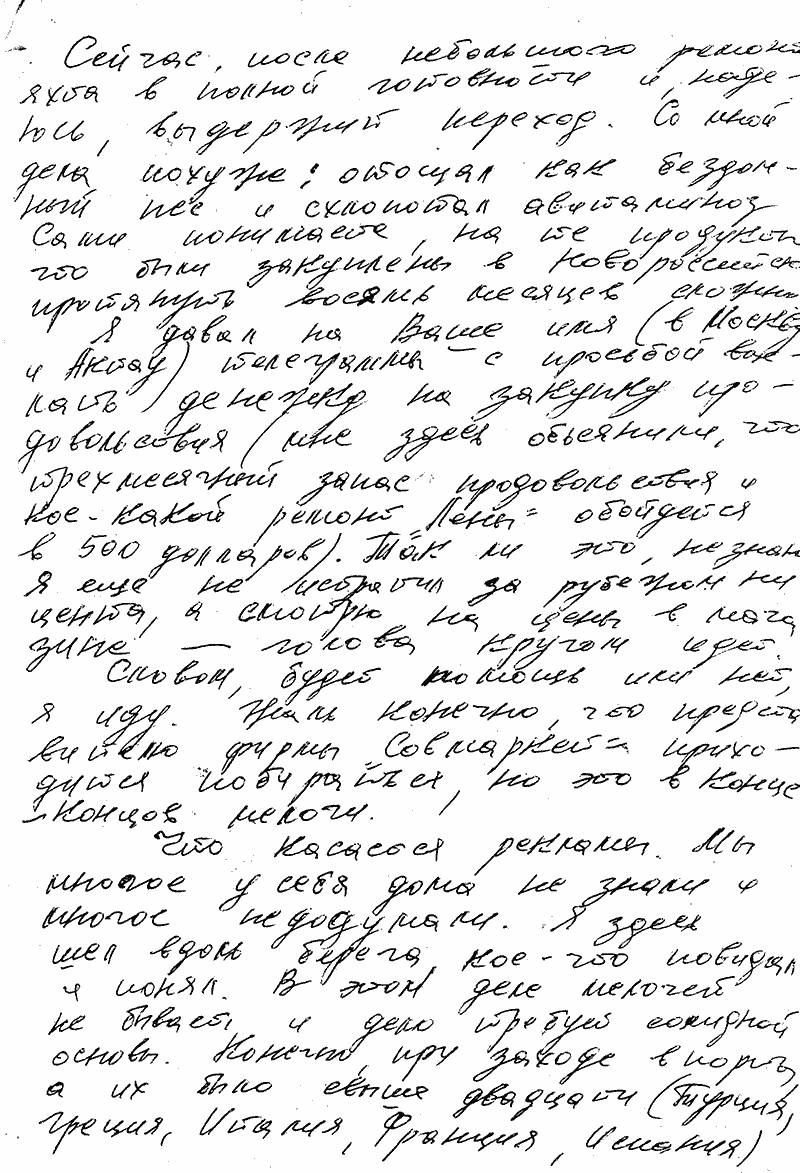 Сейчас, после небольшого ремонт
яхта в полной готовности и, наде-
юсь, выдержит переход. Со мной
дела похуже: отощал как бездом-
ный пёс и схлопотал авитаминоз
Сами понимаете, на те продукты
что были закуплены в Новороссийске
протянуть восемь месяцев сложно
Я давал на Ваше имя (в Москву
и Актау) телеграммы с просьбой вы-
лать денежку на закупку про-
довольствия (мне здесь объяснили, что
трехмесячный запас продовольствия и
кое-какой ремонт "Лены" обойдется
в 500 долларов). Так ли это, не знаю
Я еще не истратил за рубежом ни
цента, а смотрю на цены в мага
зине — голова кругом идет.
Словом, будет помощь или нет,
я иду. Жаль конечно, что предста
вителю фирмы "Совмаркет" прихо-
дится побираться, но это в конце
-концов мелочи.
Что касается рекламы. Мы
многое у себя дома не знали и
многое недодумали. Я здесь
шел вдоль берега, кое-что повидал
и понял. В этом деле мелочей
не бывает, и дело требует солидной
основы. Конечно, при заходе в порты,
а их было свыше двадцати (Турция,
Греция, Италия, Франция, Испания)